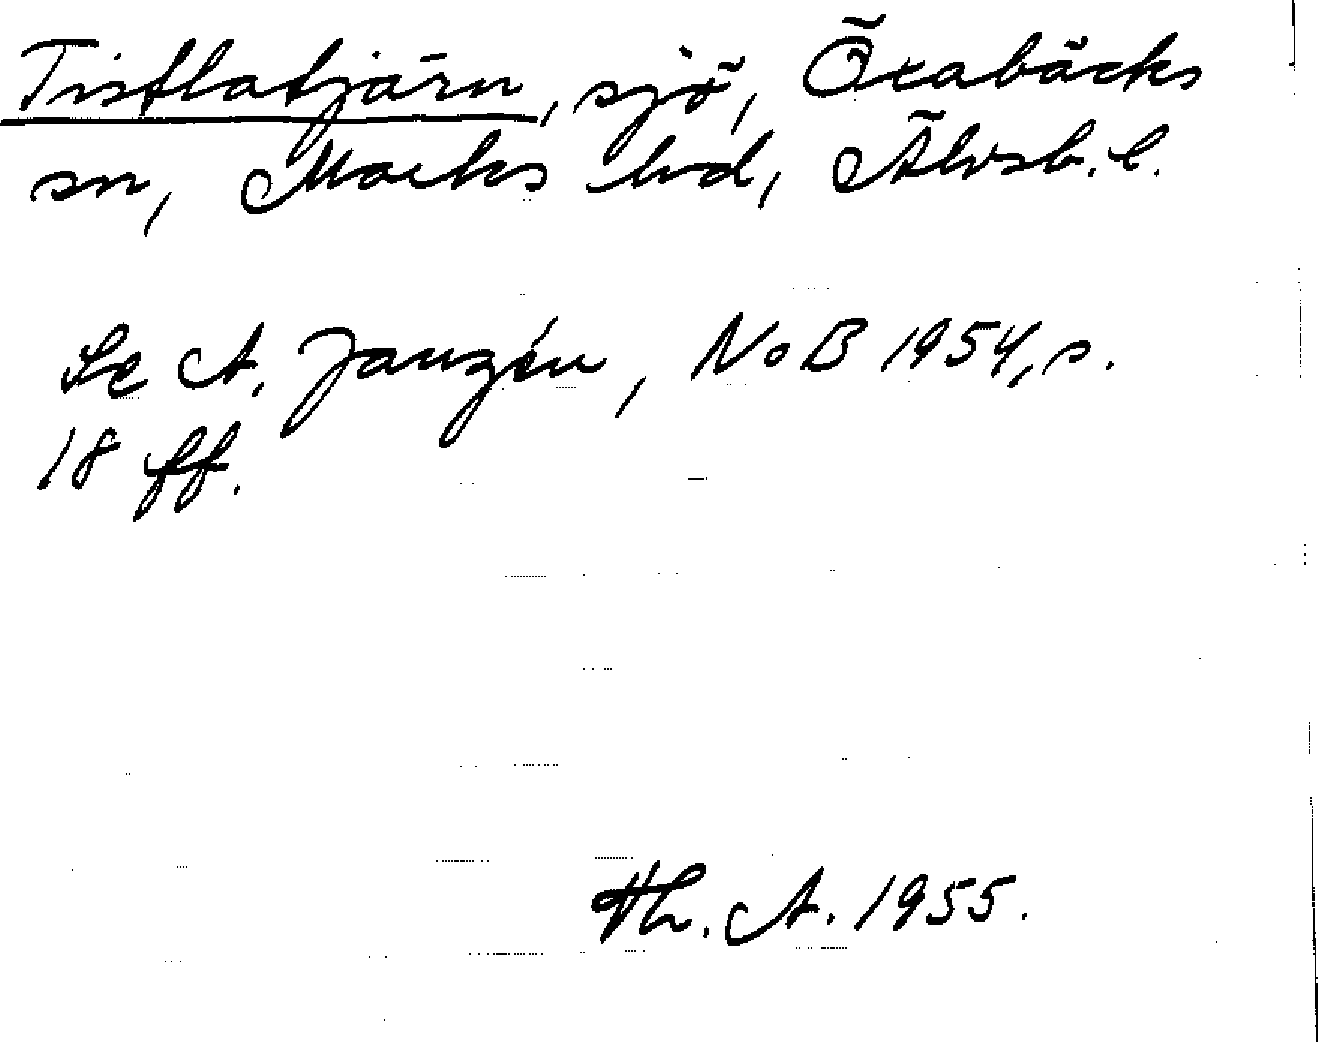 Tistlatjärn, sjö, Öxabäcks
sn, Marks hd, Älvsb. l.
Se A. Janzén, NoB 1954, s.
18 ff.
Th. A. 1955.